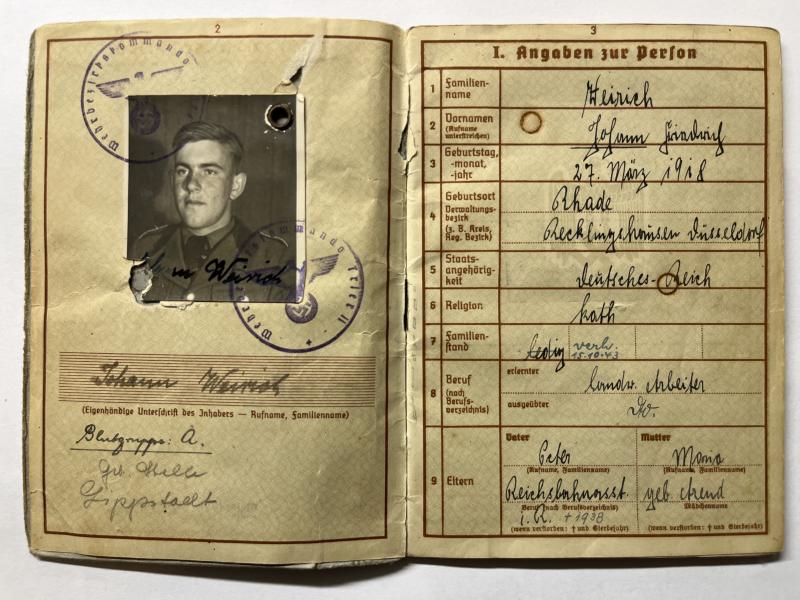 2
Wehrbezirkskommando
Wehrbezirkskommando Trier II
Johann Weirich
Johann Weirich
(Eigenhändige Unterschrift des Inhabers — Rufname, Familienname)
Blutgruppe: A.
Lippstadt
3
I. Angaben zur Person
1 Familien-
name
Weirich
2 Vornamen
(Rufname
unterstreichen)
Johann Friedrich
3 Geburtstag,
-monat,
-jahr
27. März 1918
4 Geburtsort
Verwaltungs-
bezirk
(z. B. Kreis,
Reg. Bezirk)
Rhade
Recklingshausen Düsseldorf
5 Staats-
angehörig-
keit
Deutsches-Reich
6 Religion
kath
7 Familien-
stand
ledig verh.
15.10.43
8 Beruf
(nach
Berufs-
verzeichnis)
erlernter
Landw. Arbeiter
ausgeübter
Do.
9 Eltern
Vater Mutter
Peter Maria
(Rufname, Familienname) (Rufname, Familienname)
Reichsbahnasst. geb Arend
Beruf (nach Berufsverzeichnis) Mädchenname
i. R. † 1938
(wenn verstorben: † und Sterbejahr) (wenn verstorben: † und Sterbejahr)